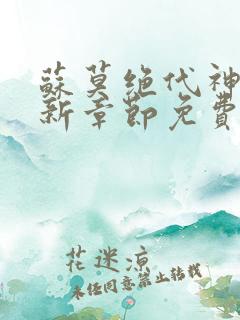 蘇莫絕代神
新章節免費
花迷凉
未经同意禁止转载